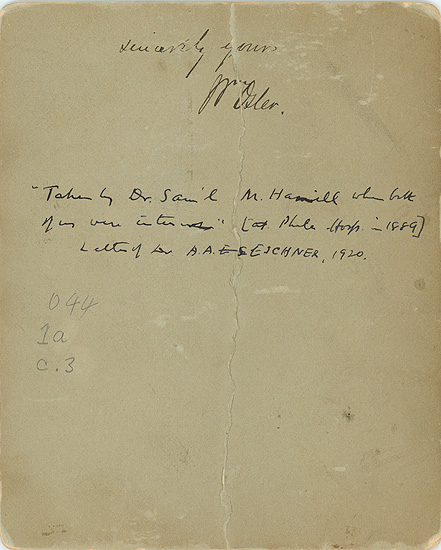 sincerely yours
Wm Osler.
"Taken by Dr. Sam'l M. Hamill when both
of us were internes" [at Phila Hosp. in 1889]
Letter of Dr A.A. ESCHNER, 1920.
044
1a
c.3